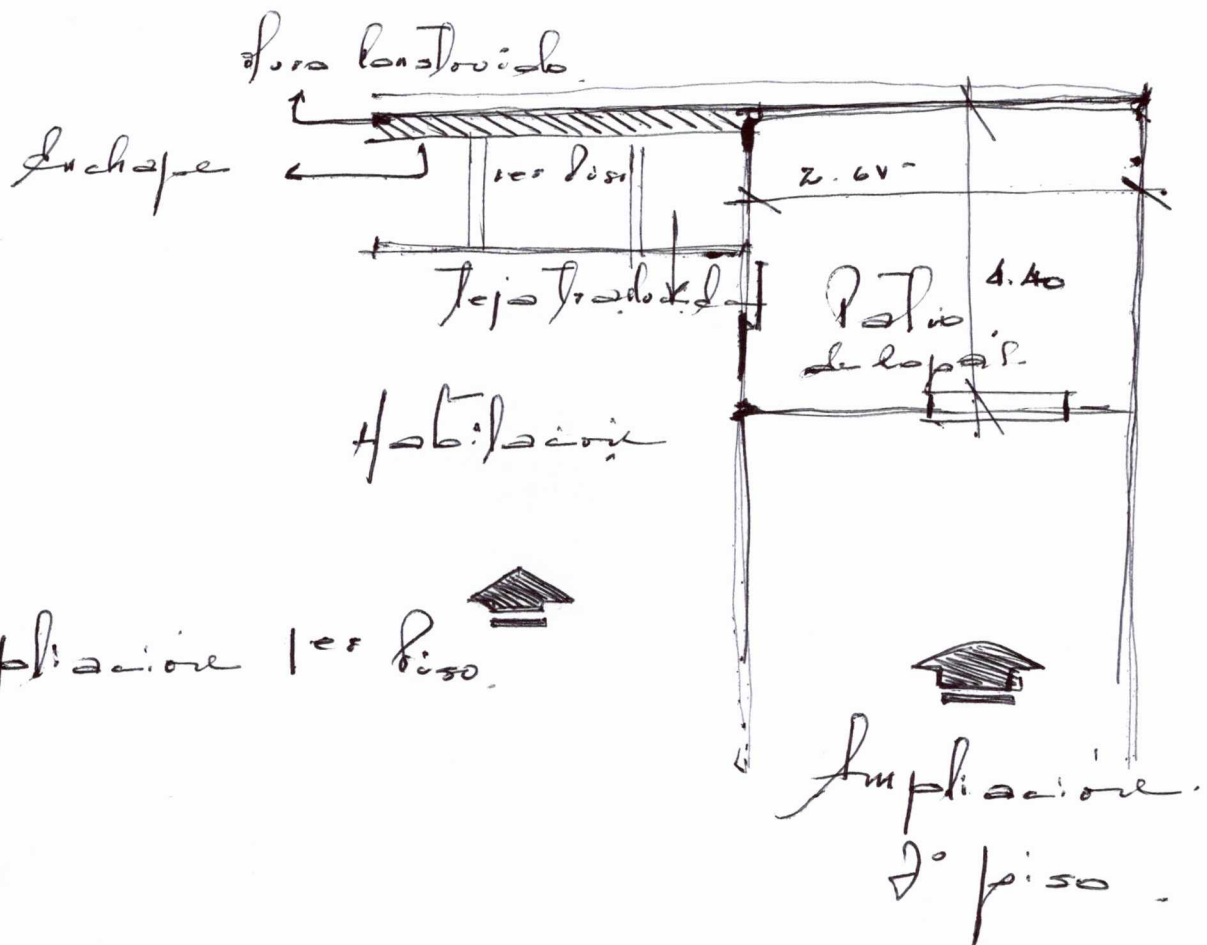 Muro Construido.
Enchape
1er Piso
2.60
Teja Traslucida
4.40
Patio
de Ropas.
Habitación
pliación 1er Piso.
Ampliación.
2° piso.